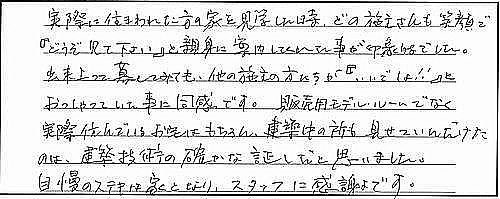 実際に住まわれた方の家を見学した時、どの施主さんも笑顔で
『どうぞ見て下さい』と親身に案内してくれた事が印象的でした。
出来上って暮してみても、他の施主の方たちが『いいでしょ！』と
おっしゃっていた事に同感です。販売用モデルルームでなく
実際住んでいるお宅はもちろん、建築中の所も見せていただけた
のは、建築技術の確かな証しだと思いました。
自慢のステキな家となり、スタッフに感謝です。